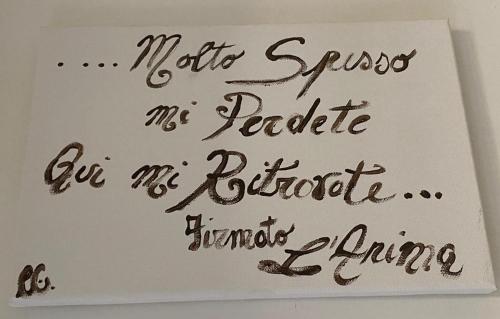 .... Molto Spesso
mi Perdete
Qui mi Ritrovate...
Firmato
L'Anima